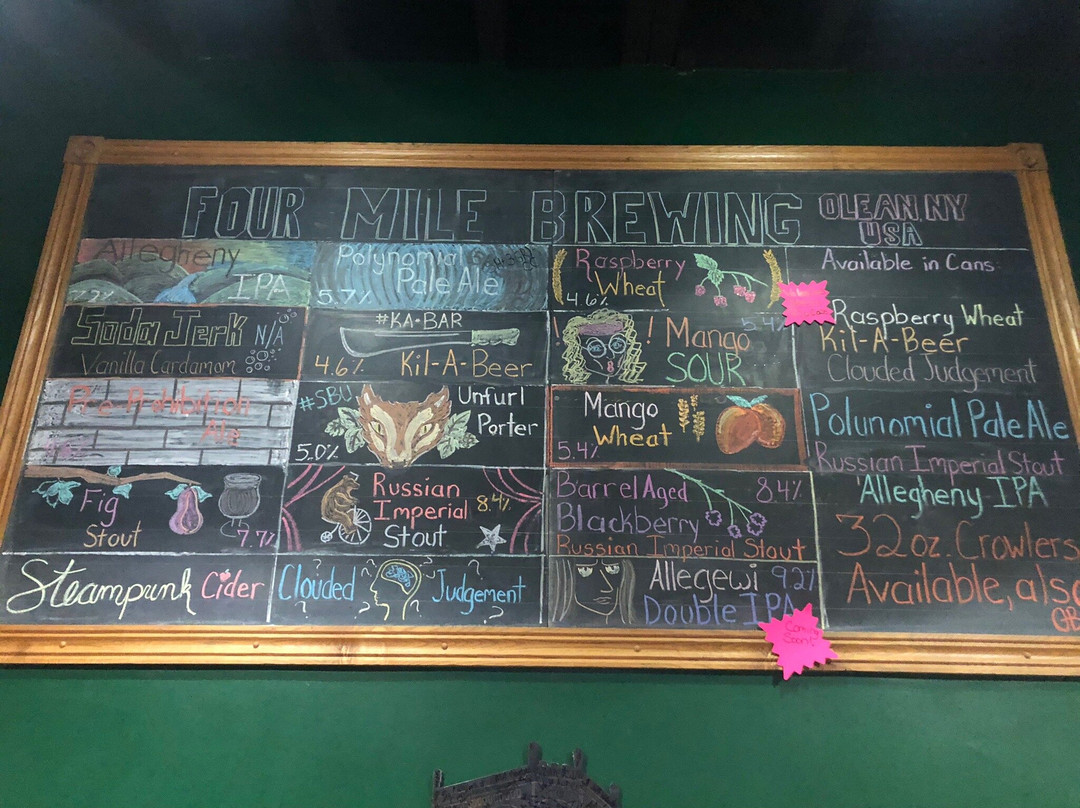 FOUR MILE BREWING
OLEAN, NY
USA
Allegheny
IPA
Soda Jerk N/A
Vanilla Cardamom
Pre-Prohibition
Ale
Fig
Stout
7.7%
Steampunk Cider
Polynomial
Pale Ale
5.7%
#KA-BAR
4.6% Kil-A-Beer
#SBU
Unfurl
Porter
5.0%
Russian
Imperial 8.4%
Stout
Clouded Judgement
Raspberry
Wheat
4.6%
! ! Mango 5.4%
SOUR
Mango
Wheat
5.4%
Barrel Aged 8.4%
Blackberry
Russian Imperial Stout
Allegewi 9.2%
Double IPA
Coming
Soon!
Available in Cans:
Raspberry Wheat
Kil-A-Beer
Clouded Judgement
Polunomial Pale Ale
Russian Imperial Stout
Allegheny IPA
32 oz. Crowlers
Available, also